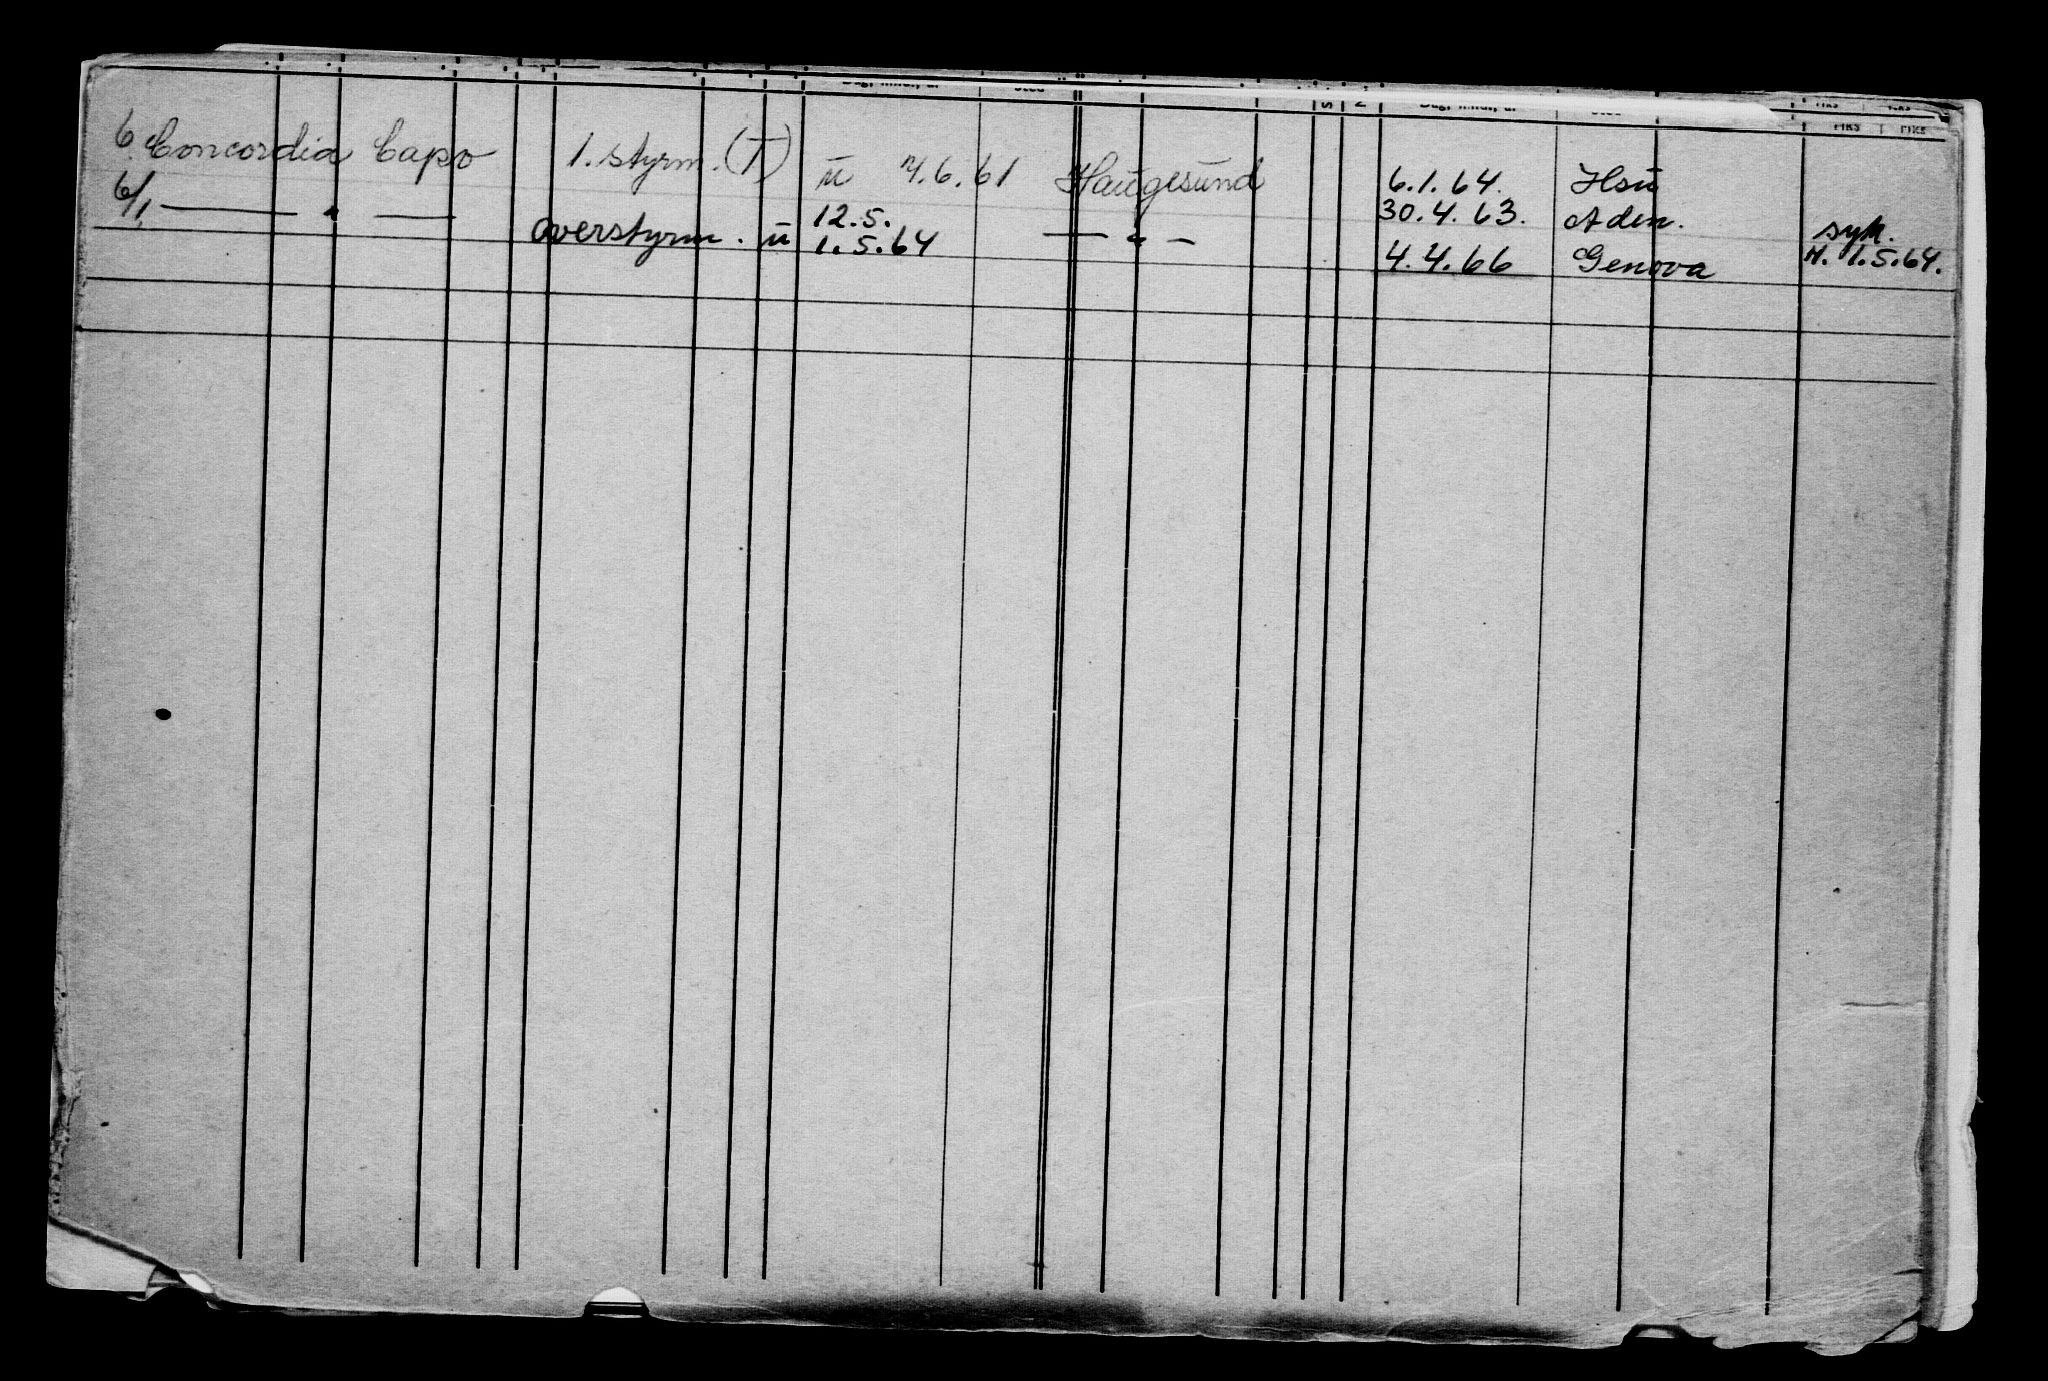 6 Concordia Capo 1. styrm. (T) u 7.6.61 Haugesund 6.1.64. Hsu
6/1 — " — 12.5. 30.4.63. Aden. syk.
overstyrm. u 1.5.64 — " — 4.4.66 Genova H. 1.5.64.